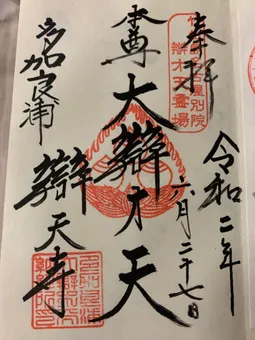 奉拝
令和二年
六月二十七日
名古屋別院
辯才天霊場
本尊
大辯才天
多加良浦
辯天寺